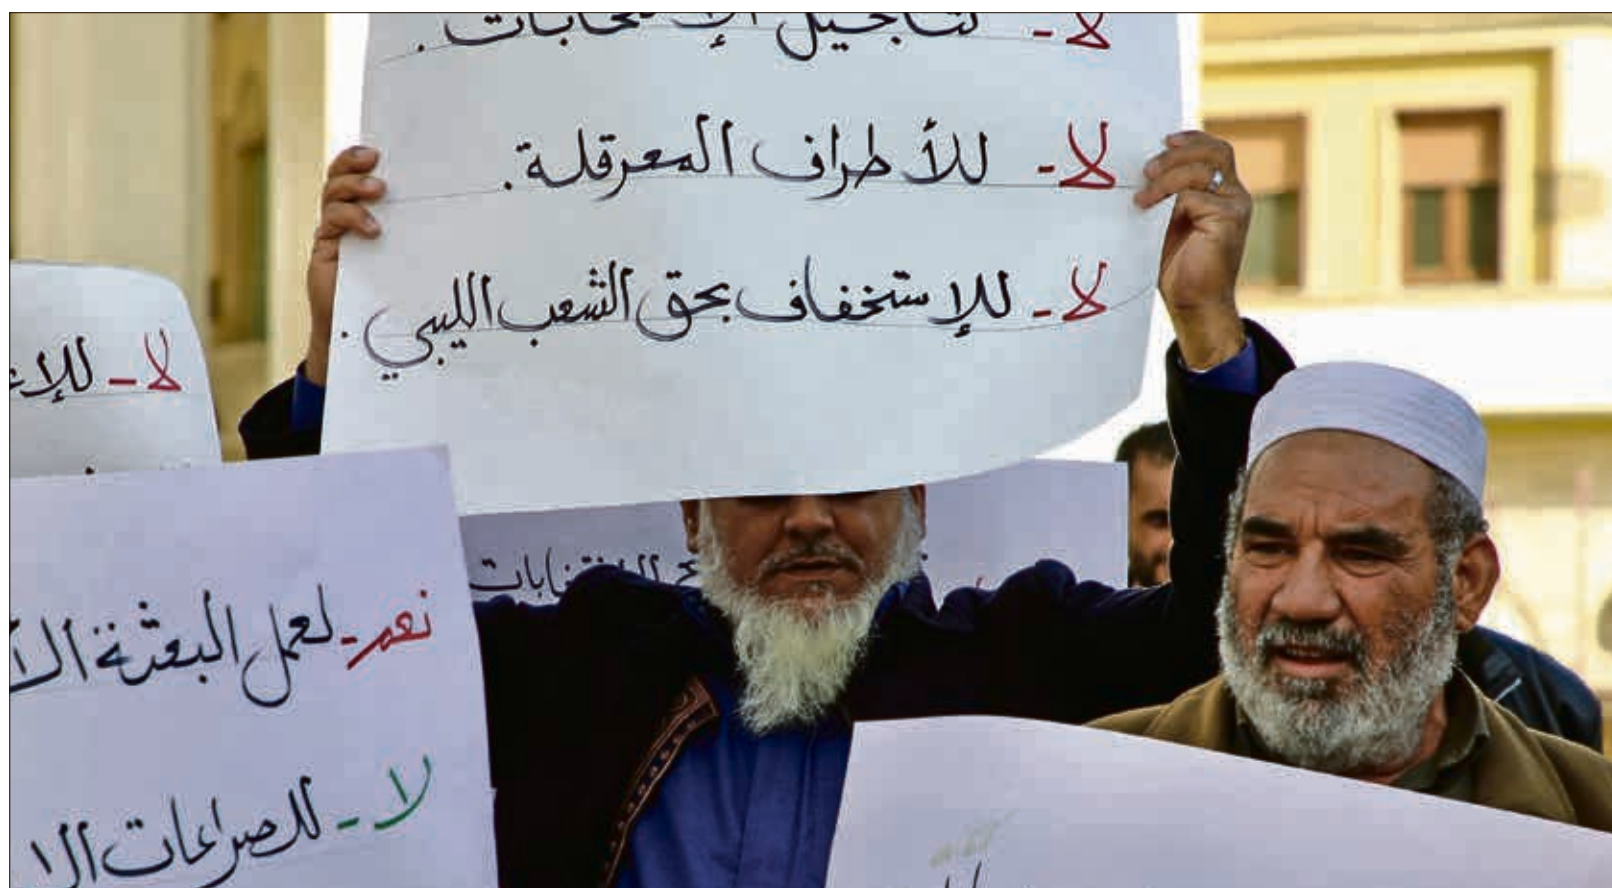 لا - لتأجيل الإنتخابات.
لا - للأطراف المعرقلة.
لا - للإستخفاف بحق الشعب الليبي.
لا -
نعم - لعمل البعثة
لا - للصراعات